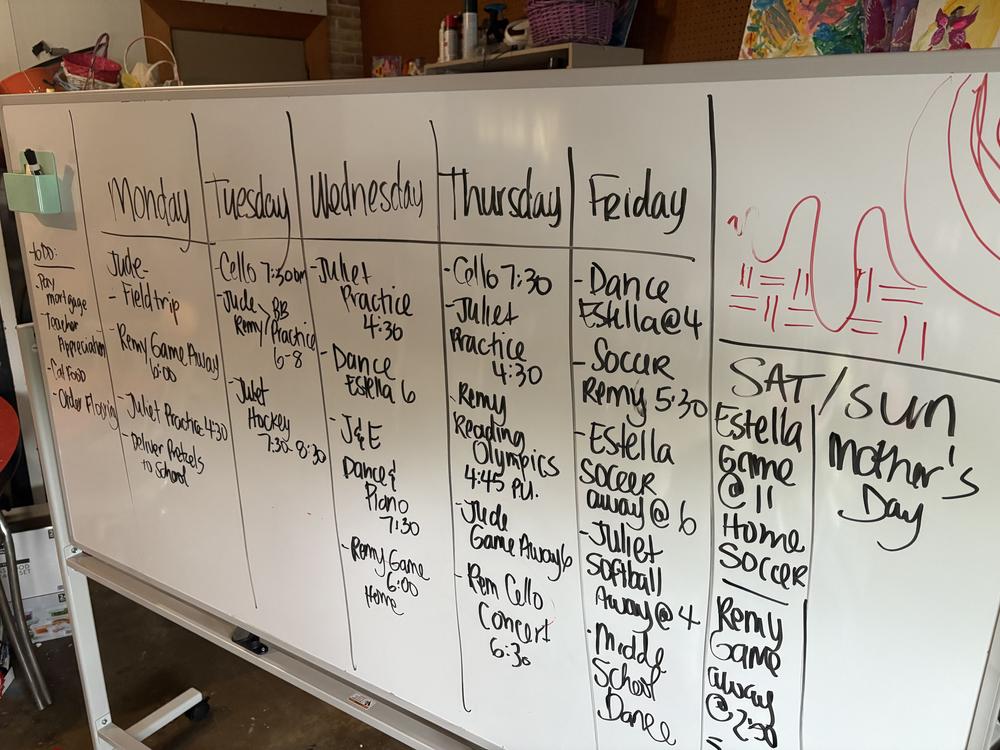 to do:
- Pay
mortgage
- Teacher
Appreciation
- Cat Food
- Order Flooring
Monday
Jude-
- Field trip
- Remy Game Away
6:00
- Juliet Practice 4:30
- Deliver Pretzels
to School
Tuesday
- Cello 7:30am
- Jude > BB
Remy / Practice
6-8
- Juliet
Hockey
7:30-8:30
Wednesday
- Juliet
Practice
4:30
- Dance
Estella 6
- J&E
Dance &
Piano
7:30
- Remy Game
6:00
Home
Thursday
- Cello 7:30
- Juliet
Practice
4:30
- Remy
Reading
Olympics
4:45 P.U.
- Jude
Game Away 6
- Rem Cello
Concert
6:30
Friday
- Dance
Estella @ 4
- Soccer
Remy 5:30
- Estella
Soccer
away @ 6
- Juliet
Softball
Away @ 4
- Middle
School
Dance
SAT/sun
Estella
Game
@ 11
Home
Soccer
Remy
Game
away
@ 2:30
Mother's
Day